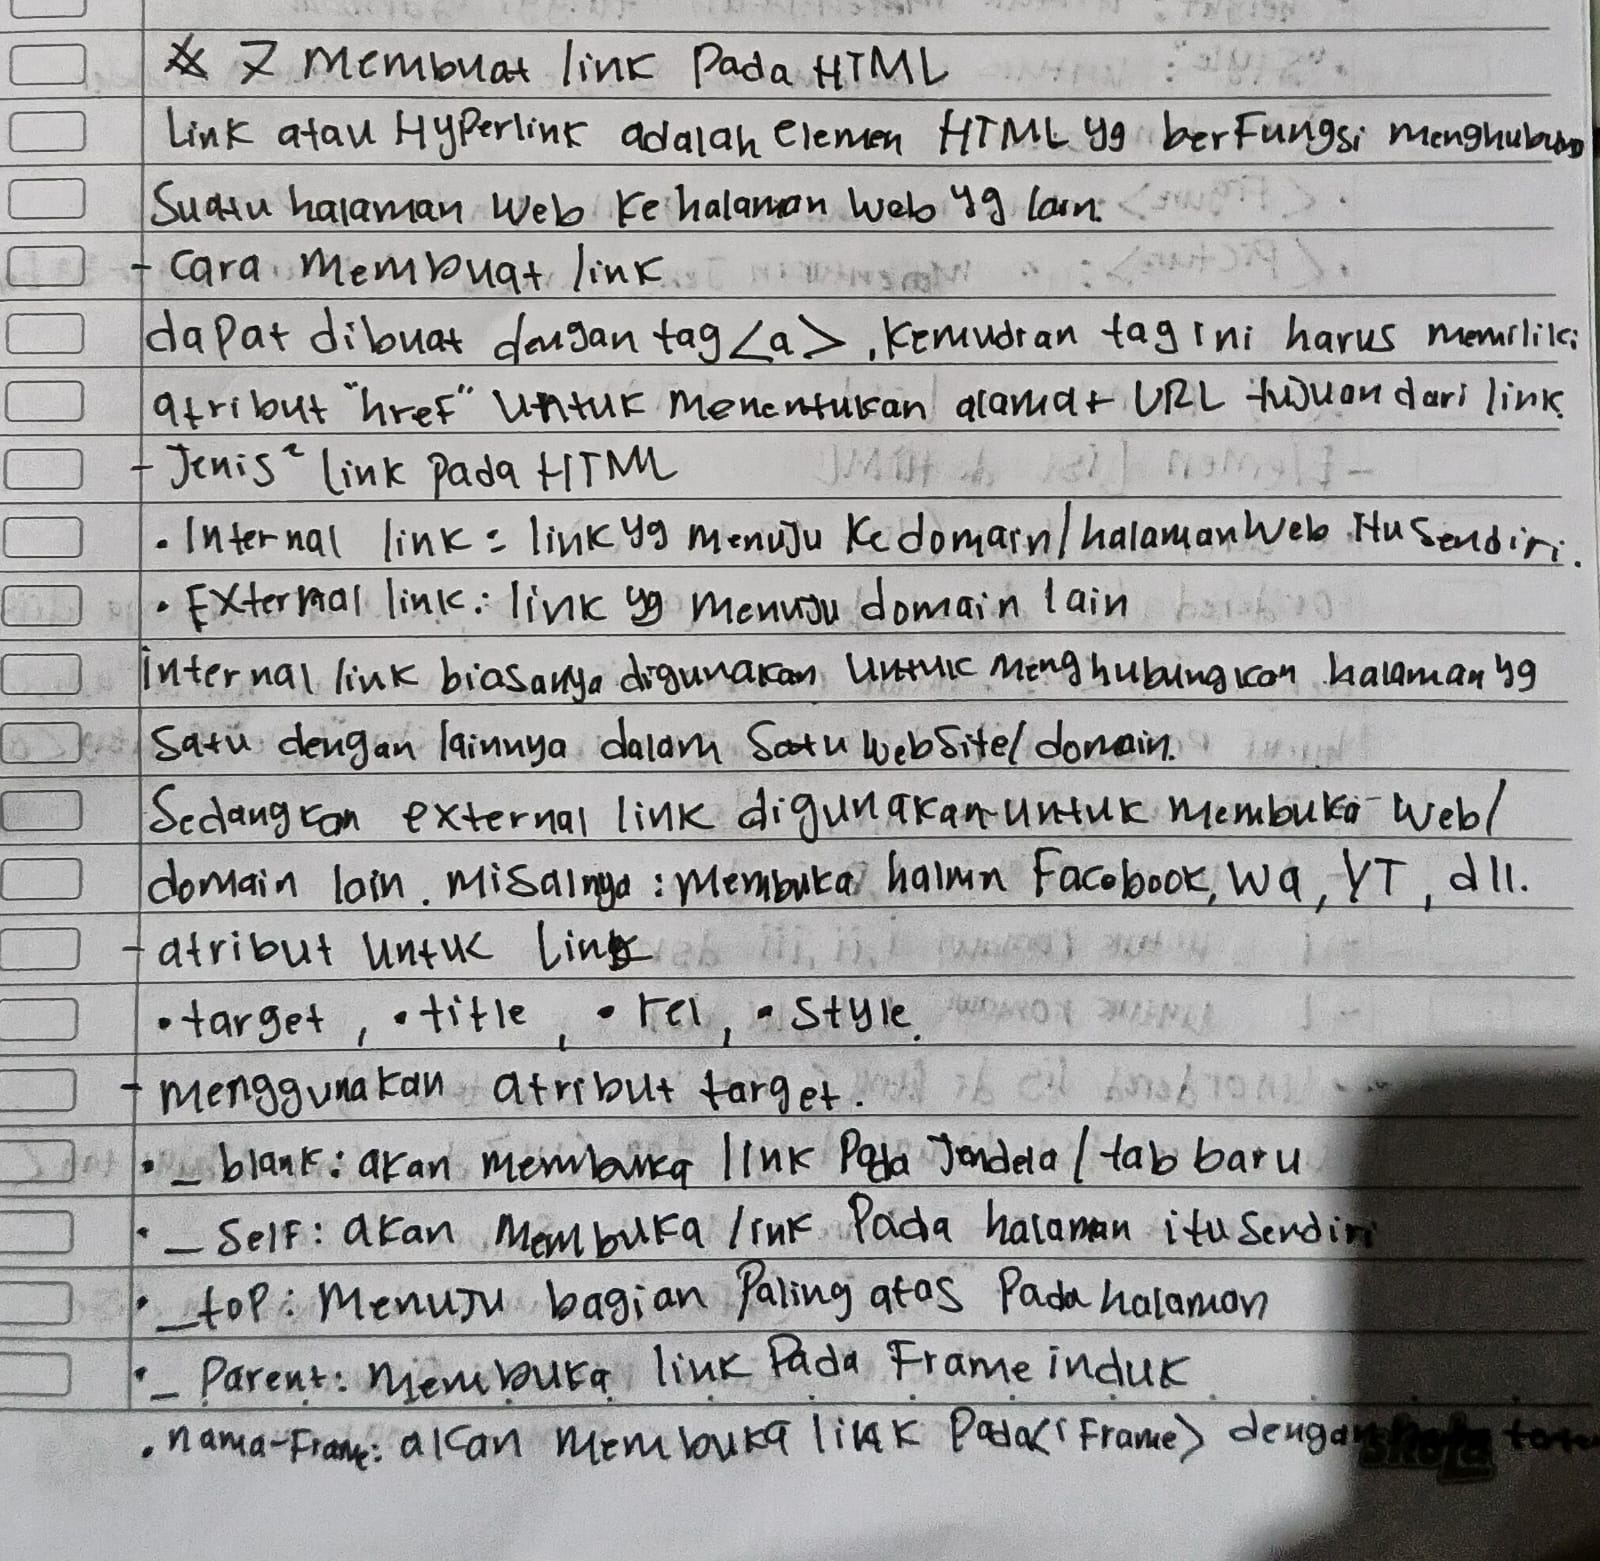 * 7 Membuat link Pada HTML
Link atau HyPerlink adalah Elemen HTML yg berFungsi menghubung
Suatu halaman Web Ke halaman Web yg lain.
- Cara Membuat link
dapat dibuat dengan tag <a>, Kemudian tag ini harus memiliki
atribut "href" Untuk Menentukan alamat URL tujuan dari link
- Jenis² link Pada HTML
• Internal link = link yg menuju Ke domain/halaman Web itu Sendiri.
• External link: link yg menuju domain lain
internal link biasanya digunakan Untuk menghubungkan halaman yg
Satu dengan lainnya dalam Satu WebSite/domain.
Sedangkan external link digunakan untuk membuka Web/
domain lain. Misalnya: Membuka halmn Facebook, Wa, YT, dll.
- atribut Untuk Link
• target, • title, • rel, • Style.
- menggunakan atribut target.
• _blank: akan membuka link Pada Jendela/tab baru
• _Self: akan Membuka link Pada halaman itu Sendiri
• _toP: Menuju bagian Paling atas Pada halaman
• _Parent: Membuka link Pada Frame induk
• nama-Frame: akan Membuka link Pada <iFrame> dengan